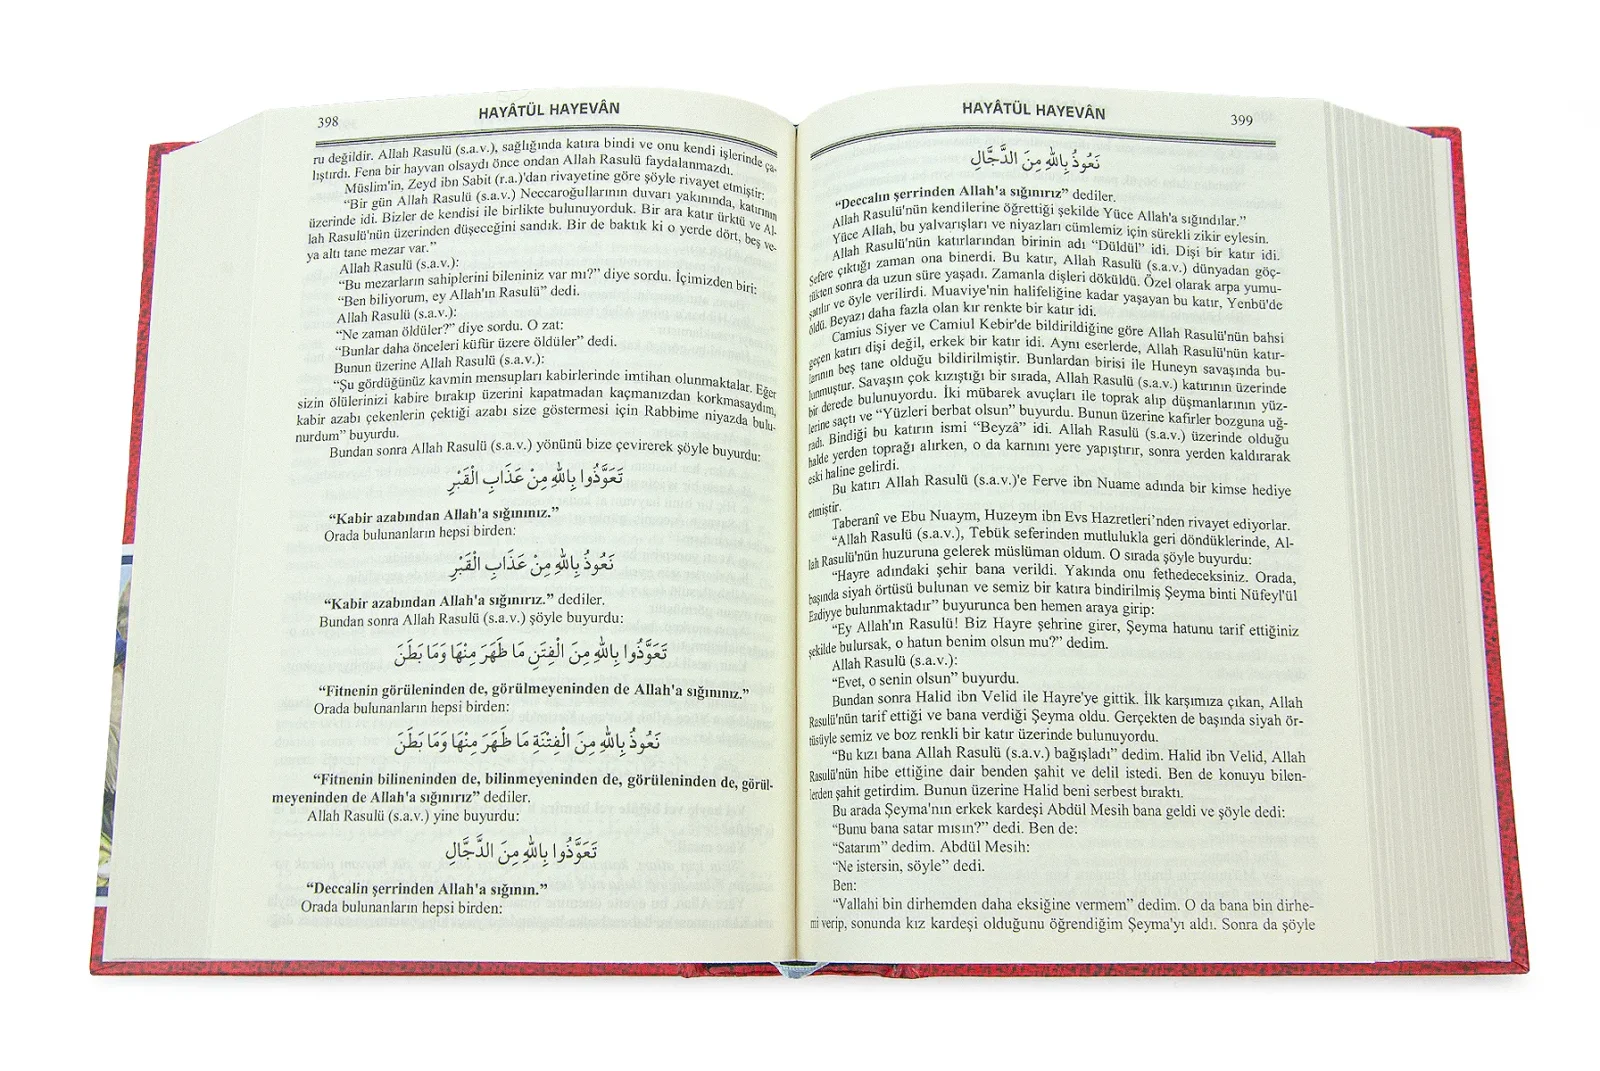 398
HAYÂTÜL HAYEVÂN
ru değildir. Allah Rasulü (s.a.v.), sağlığında katıra bindi ve onu kendi işlerinde ça-
lıştırdı. Fena bir hayvan olsaydı önce ondan Allah Rasulü faydalanmazdı.
Müslim'in, Zeyd ibn Sabit (r.a.)'dan rivayetine göre şöyle rivayet etmiştir:
“Bir gün Allah Rasulü (s.a.v.) Neccaroğullarının duvarı yakınında, katırının
üzerinde idi. Bizler de kendisi ile birlikte bulunuyorduk. Bir ara katır ürktü ve Al-
lah Rasulü'nün üzerinden düşeceğini sandık. Bir de baktık ki o yerde dört, beş ve-
ya altı tane mezar var.”
Allah Rasulü (s.a.v.):
“Bu mezarların sahiplerini bileniniz var mı?” diye sordu. İçimizden biri:
“Ben biliyorum, ey Allah'ın Rasulü” dedi.
Allah Rasulü (s.a.v.):
“Ne zaman öldüler?” diye sordu. O zat:
“Bunlar daha önceleri küfür üzere öldüler” dedi.
Bunun üzerine Allah Rasulü (s.a.v.):
“Şu gördüğünüz kavmin mensupları kabirlerinde imtihan olunmaktalar. Eğer
sizin ölülerinizi kabire bırakıp üzerini kapatmadan kaçmanızdan korkmasaydım,
kabir azabı çekenlerin çektiği azabı size göstermesi için Rabbime niyazda bulu-
nurdum” buyurdu.
Bundan sonra Allah Rasulü (s.a.v.) yönünü bize çevirerek şöyle buyurdu:
تَعَوَّذُوا بِاللهِ مِنْ عَذَابِ الْقَبْرِ
“Kabir azabından Allah'a sığınınız.”
Orada bulunanların hepsi birden:
نَعُوذُ بِاللهِ مِنْ عَذَابِ الْقَبْرِ
“Kabir azabından Allah'a sığınırız.” dediler.
Bundan sonra Allah Rasulü (s.a.v.) şöyle buyurdu:
تَعَوَّذُوا بِاللهِ مِنَ الْفِتَنِ مَا ظَهَرَ مِنْهَا وَمَا بَطَنَ
“Fitnenin görüleninden de, görülmeyeninden de Allah'a sığınınız.”
Orada bulunanların hepsi birden:
نَعُوذُ بِاللهِ مِنَ الْفِتْنَةِ مَا ظَهَرَ مِنْهَا وَمَا بَطَنَ
“Fitnenin bilineninden de, bilinmeyeninden de, görüleninden de, görül-
meyeninden de Allah'a sığınırız” dediler.
Allah Rasulü (s.a.v.) yine buyurdu:
تَعَوَّذُوا بِاللهِ مِنَ الدَّجَّالِ
“Deccalin şerrinden Allah'a sığının.”
Orada bulunanların hepsi birden:
HAYÂTÜL HAYEVÂN
399
نَعُوذُ بِاللهِ مِنَ الدَّجَّالِ
“Deccalın şerrinden Allah'a sığınırız” dediler.
Allah Rasulü'nün kendilerine öğrettiği şekilde Yüce Allah'a sığındılar.”
Yüce Allah, bu yalvarışları ve niyazları cümlemiz için sürekli zikir eylesin.
Allah Rasulü'nün katırlarından birinin adı “Düldül” idi. Dişi bir katır idi.
Sefere çıktığı zaman ona binerdi. Bu katır, Allah Rasulü (s.a.v.) dünyadan göç-
tükten sonra da uzun süre yaşadı. Zamanla dişleri döküldü. Özel olarak arpa yumu-
şatılır ve öyle verilirdi. Muaviye'nin halifeliğine kadar yaşayan bu katır, Yenbü'de
öldü. Beyazı daha fazla olan kır renkte bir katır idi.
Camius Siyer ve Camiul Kebir'de bildirildiğine göre Allah Rasulü'nün bahsi
geçen katırı dişi değil, erkek bir katır idi. Aynı eserlerde, Allah Rasulü'nün katır-
larının beş tane olduğu bildirilmiştir. Bunlardan birisi ile Huneyn savaşında bu-
lunmuştur. Savaşın çok kızıştığı bir sırada, Allah Rasulü (s.a.v.) katırının üzerinde
bir derede bulunuyordu. İki mübarek avuçları ile toprak alıp düşmanlarının yüz-
lerine saçtı ve “Yüzleri berbat olsun” buyurdu. Bunun üzerine kafirler bozguna uğ-
radı. Bindiği bu katırın ismi “Beyzâ” idi. Allah Rasulü (s.a.v.) üzerinde olduğu
halde yerden toprağı alırken, o da karnını yere yapıştırır, sonra yerden kaldırarak
eski haline gelirdi.
Bu katırı Allah Rasulü (s.a.v.)'e Ferve ibn Nuame adında bir kimse hediye
etmiştir.
Taberanî ve Ebu Nuaym, Huzeym ibn Evs Hazretleri'nden rivayet ediyorlar.
“Allah Rasulü (s.a.v.), Tebük seferinden mutlulukla geri döndüklerinde, Al-
lah Rasulü'nün huzuruna gelerek müslüman oldum. O sırada şöyle buyurdu:
“Hayre adındaki şehir bana verildi. Yakında onu fethedeceksiniz. Orada,
başında siyah örtüsü bulunan ve semiz bir katıra bindirilmiş Şeyma binti Nüfeyl'ül
Eadiyye bulunmaktadır” buyurunca ben hemen araya girip:
“Ey Allah'ın Rasulü! Biz Hayre şehrine girer, Şeyma hatunu tarif ettiğiniz
şekilde bulursak, o hatun benim olsun mu?” dedim.
Allah Rasulü (s.a.v.):
“Evet, o senin olsun” buyurdu.
Bundan sonra Halid ibn Velid ile Hayre'ye gittik. İlk karşımıza çıkan, Allah
Rasulü'nün tarif ettiği ve bana verdiği Şeyma oldu. Gerçekten de başında siyah ör-
tüsüyle semiz ve boz renkli bir katır üzerinde bulunuyordu.
“Bu kızı bana Allah Rasulü (s.a.v.) bağışladı” dedim. Halid ibn Velid, Allah
Rasulü'nün hibe ettiğine dair benden şahit ve delil istedi. Ben de konuyu bilen-
lerden şahit getirdim. Bunun üzerine Halid beni serbest bıraktı.
Bu arada Şeyma'nın erkek kardeşi Abdül Mesih bana geldi ve şöyle dedi:
“Bunu bana satar mısın?” dedi. Ben de:
“Satarım” dedim. Abdül Mesih:
“Ne istersin, söyle” dedi.
Ben:
“Vallahi bin dirhemden daha eksiğine vermem” dedim. O da bana bin dirhe-
mi verip, sonunda kız kardeşi olduğunu öğrendiğim Şeyma'yı aldı. Sonra da şöyle